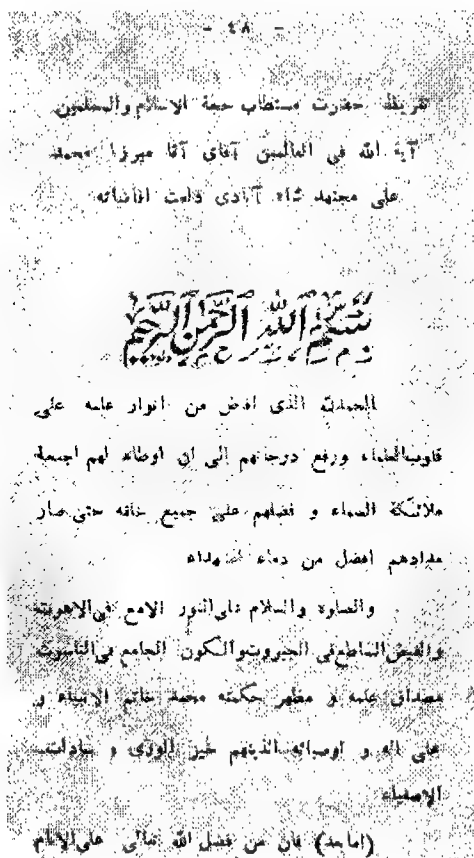 - ٤٨ -
تقریظ حضرت مستطاب حجة الاسلام والمسلمین
آیة الله فی العالمین آقای آقا میرزا محمد
علی مجتهد شاه آبادی دامت افاضاته
بسم الله الرحمن الرحیم
الحمدلله الذی افاض من انوار علمه علی
قلوب العلماء ورفع درجاتهم الی ان اوطاء لهم اجنحة
ملائکة السماء و فضلهم علی جمیع خلقه حتی صار
مدادهم افضل من دماء الشهداء
والصلوة والسلام علی النور الامع فی الاهوت
والفیض الساطع فی الجبروت والکون الجامع فی الناسوت
مصداق علمه و مظهر حکمته محمد خاتم الانبیاء و
علی اله و اوصیائه الذینهم خیر الوری و سادات
الاصفیاء
(امابعد) فان من فضل الله تعالی علی الانام